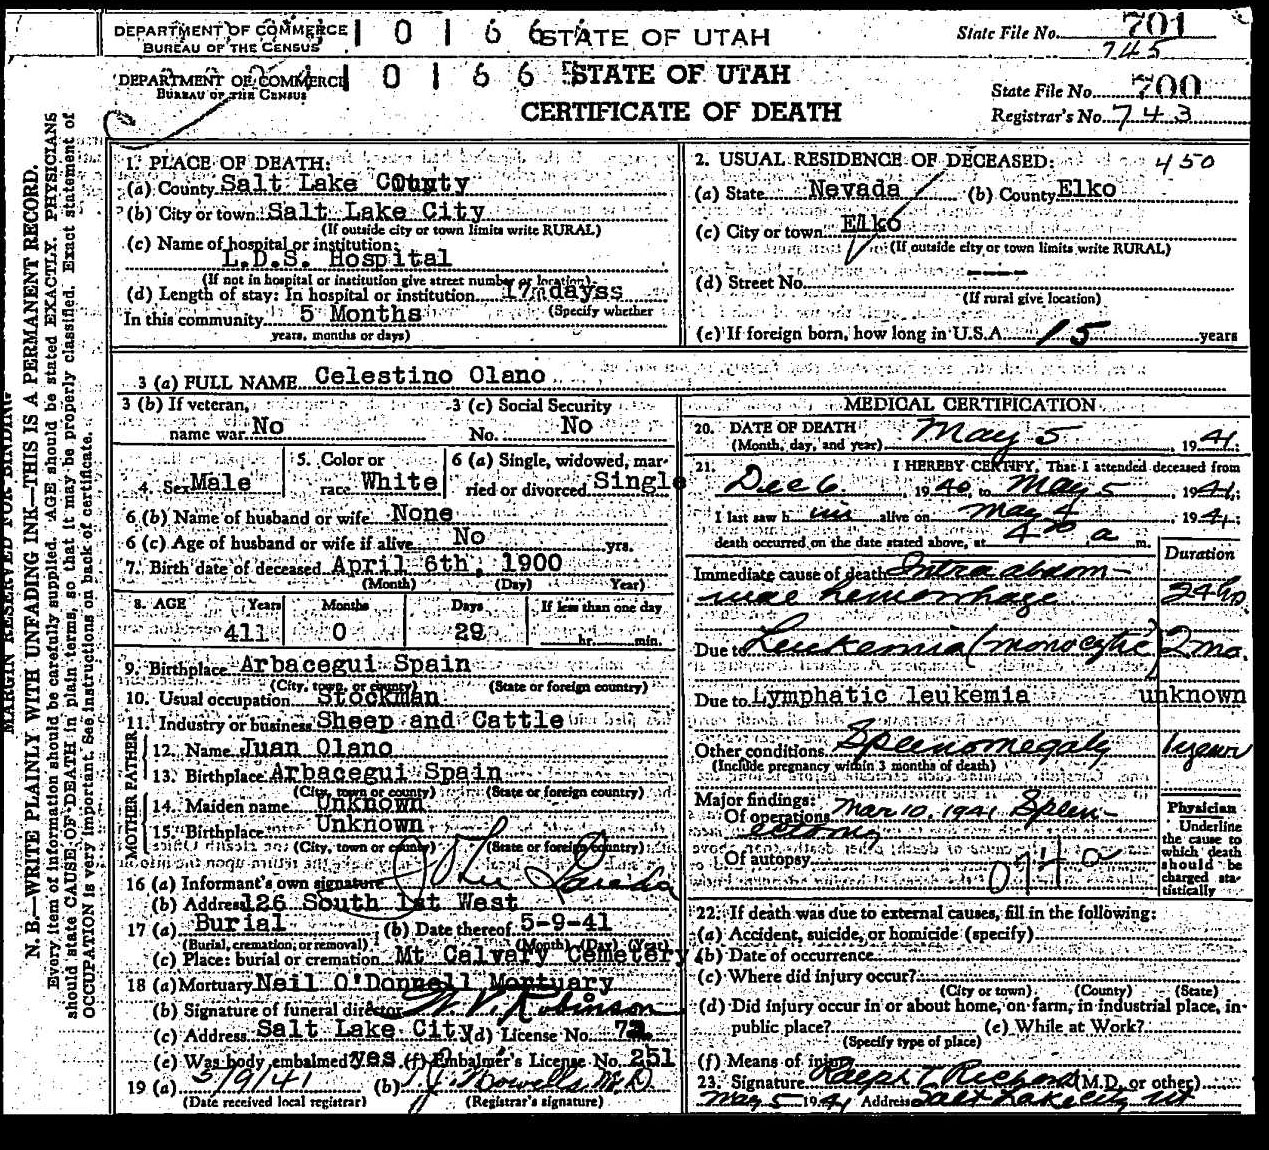 DEPARTMENT OF COMMERCE
BUREAU OF THE CENSUS
1 0 1 6 6
STATE OF UTAH
State File No. 701
745
DEPARTMENT OF COMMERCE
BUREAU OF THE CENSUS
1 0 1 6 6 5
STATE OF UTAH
CERTIFICATE OF DEATH
State File No. 700
Registrar's No. 743
MARGIN RESERVED FOR BINDING
N. B.—WRITE PLAINLY WITH UNFADING INK—THIS IS A PERMANENT RECORD.
Every item of information should be carefully supplied. AGE should be stated EXACTLY. PHYSICIANS
should state CAUSE OF DEATH in plain terms, so that it may be properly classified. Exact statement of
OCCUPATION is very important. See instructions on back of certificate.
1. PLACE OF DEATH:
(a) County Salt Lake County
(b) City or town Salt Lake City
(If outside city or town limits write RURAL)
(c) Name of hospital or institution:
L.D.S. Hospital
(If not in hospital or institution give street number or location)
(d) Length of stay: In hospital or institution 17 days
(Specify whether
In this community 5 Months
years, months or days)
2. USUAL RESIDENCE OF DECEASED: 450
(a) State Nevada (b) County Elko
(c) City or town Elko
(If outside city or town limits write RURAL)
(d) Street No. ----
(If rural give location)
(e) If foreign born, how long in U.S.A. 15 years
3 (a) FULL NAME Celestino Olano
3 (b) If veteran,
name war No
3 (c) Social Security
No. No
4. Sex Male
5. Color or
race White
6 (a) Single, widowed, mar-
ried or divorced Single
6 (b) Name of husband or wife None
6 (c) Age of husband or wife if alive No yrs.
7. Birth date of deceased April 6th, 1900
(Month) (Day) Year)
8. AGE Years Months Days If less than one day
41 0 29 hr. min.
9. Birthplace Arbacegui Spain
(City, town, or county) (State or foreign country)
10. Usual occupation Stockman
11. Industry or business Sheep and Cattle
FATHER
12. Name Juan Olano
13. Birthplace Arbacegui Spain
(City, town or county) (State or foreign country)
MOTHER
14. Maiden name Unknown
15. Birthplace Unknown
(City, town or county) (State or foreign country)
16 (a) Informant's own signature
(b) Address 126 South 1st West
17 (a) Burial (b) Date thereof 5-9-41
(Burial, cremation, or removal) (Month) (Day) (Year)
(c) Place: burial or cremation Mt Calvary Cemetery
18 (a) Mortuary Neil O'Donnell Mortuary
(b) Signature of funeral director Robinson
(c) Address Salt Lake City (d) License No.
(e) Was body embalmed yes (f) Embalmer's License No. 251
19 (a) 5/9/41 (b) M.D.
(Date received local registrar) (Registrar's signature)
MEDICAL CERTIFICATION
20. DATE OF DEATH
(Month, day, and year) May 5, 1941;
21. I HEREBY CERTIFY, That I attended deceased from
Dec 6, 1940, to May 5, 1941;
I last saw him alive on May 4, 1941;
death occurred on the date stated above, at a m.
Duration
Immediate cause of death Intraabdom-
inal hemorrhage
Due to Leukemia (monocytic) 2 mo.
Due to Lymphatic leukemia unknown
Other conditions Splenomegaly 1 year
(Include pregnancy within 3 months of death)
Major findings:
Of operations Mar 10, 1941 Splen-
ectomy
Of autopsy
074 a
Physician
Underline
the cause to
which death
should be
charged sta-
tistically
22. If death was due to external causes, fill in the following:
(a) Accident, suicide, or homicide (specify)
(b) Date of occurrence
(c) Where did injury occur?
(City or town) (County) (State)
(d) Did injury occur in or about home, on farm, in industrial place, in
public place? (e) While at Work?
(Specify type of place)
(f) Means of injury
23. Signature Ralph T Richards (M.D. or other)
May 5 1941 Address Salt Lake City Ut